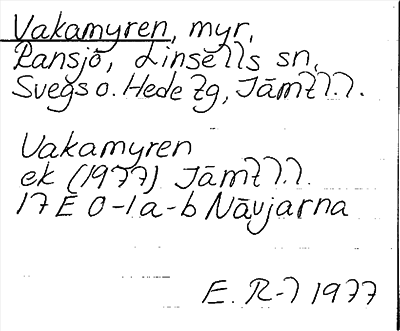 Vakamyren, myr,
Ransjö, Linsells sn,
Svegs o. Hede tg, Jämtl.l.
Vakamyren
ek (1977) Jämtl.l.
17 E 0-1a-b Nävjarna
E. R-l 1977